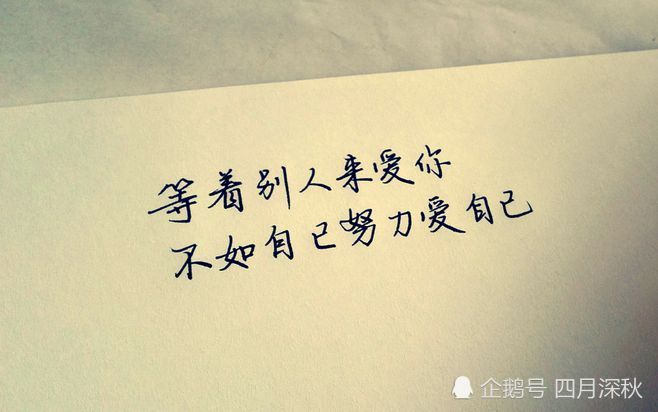 等着别人来爱你
不如自己努力爱自己
企鹅号 四月深秋